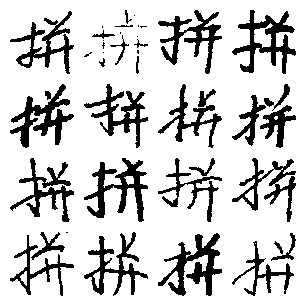 拼拼拼拼
拼拼拼拼
拼拼拼拼
拼拼拼拼